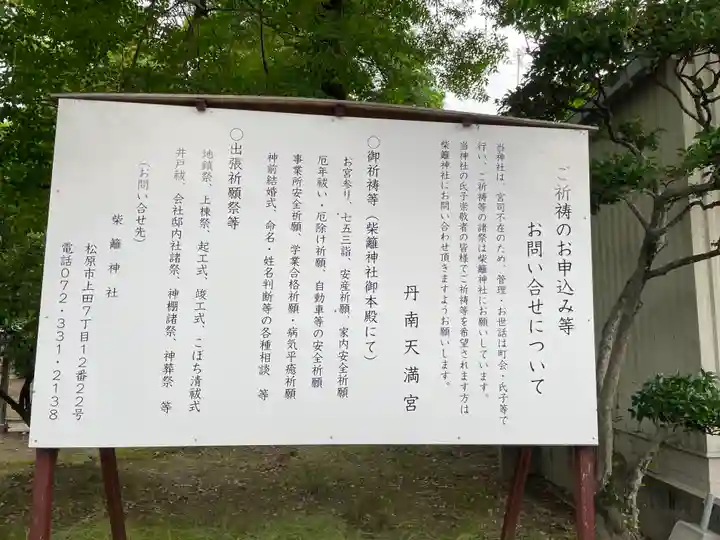 ご祈祷のお申込み等
お問い合せについて
当神社は、宮司不在のため、管理・お世話は町会・氏子等で
行い、ご祈祷等の諸祭は柴籬神社にお願いしています。
当神社の氏子崇敬者の皆様でご祈祷等を希望されます方は
柴籬神社にお問い合わせ頂きますようお願いします。
丹南天満宮
〇御祈祷等（柴籬神社御本殿にて）
お宮参り、七五三詣、安産祈願、家内安全祈願
厄年祓い・厄除け祈願、自動車等の安全祈願
事業所安全祈願、学業合格祈願・病気平癒祈願
神前結婚式、命名・姓名判断等の各種相談　等
〇出張祈願祭等
地鎮祭、上棟祭、起工式、竣工式、こぼち清祓式
井戸祓、会社邸内社諸祭、神棚諸祭、神葬祭　等
（お問い合せ先）
柴籬神社
松原市上田７丁目１２番２２号
電話０７２・３３１・２１３８